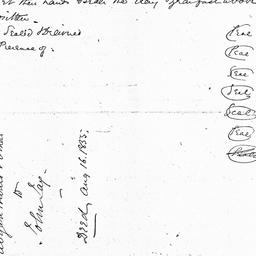 set their hands & seals the day & year first above
written.
Sealed & Delivered
Presence of.
Seal
Seal
Seal
Seal
Seal
Seal
to
John Gay.
Deed, Aug 16. 1855.